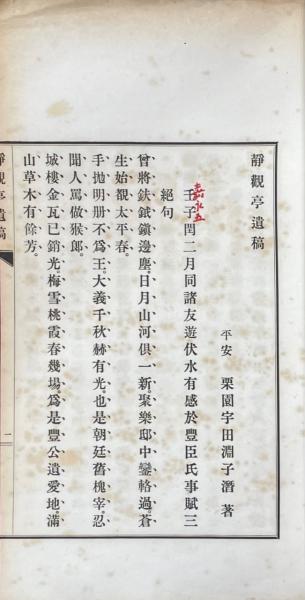 靜觀亭遺稿
平安 栗園宇田淵子潛 著
壬子閏二月同諸友遊伏水有感於豐臣氏事賦三
嘉永五
絕句
曾將鈇鉞鎭邊塵。日月山河俱一新。聚樂邸中鑾輅過。蒼
生始覩太平春。
手拋明册不爲王。大義千秋赫有光。也是朝廷舊槐宰。忍
聞人罵做猴郎。
城樓金瓦已銷光。梅雪桃霞春幾場。爲是豐公遺愛地。滿
山草木有餘芳。
靜觀亭遺稿
一